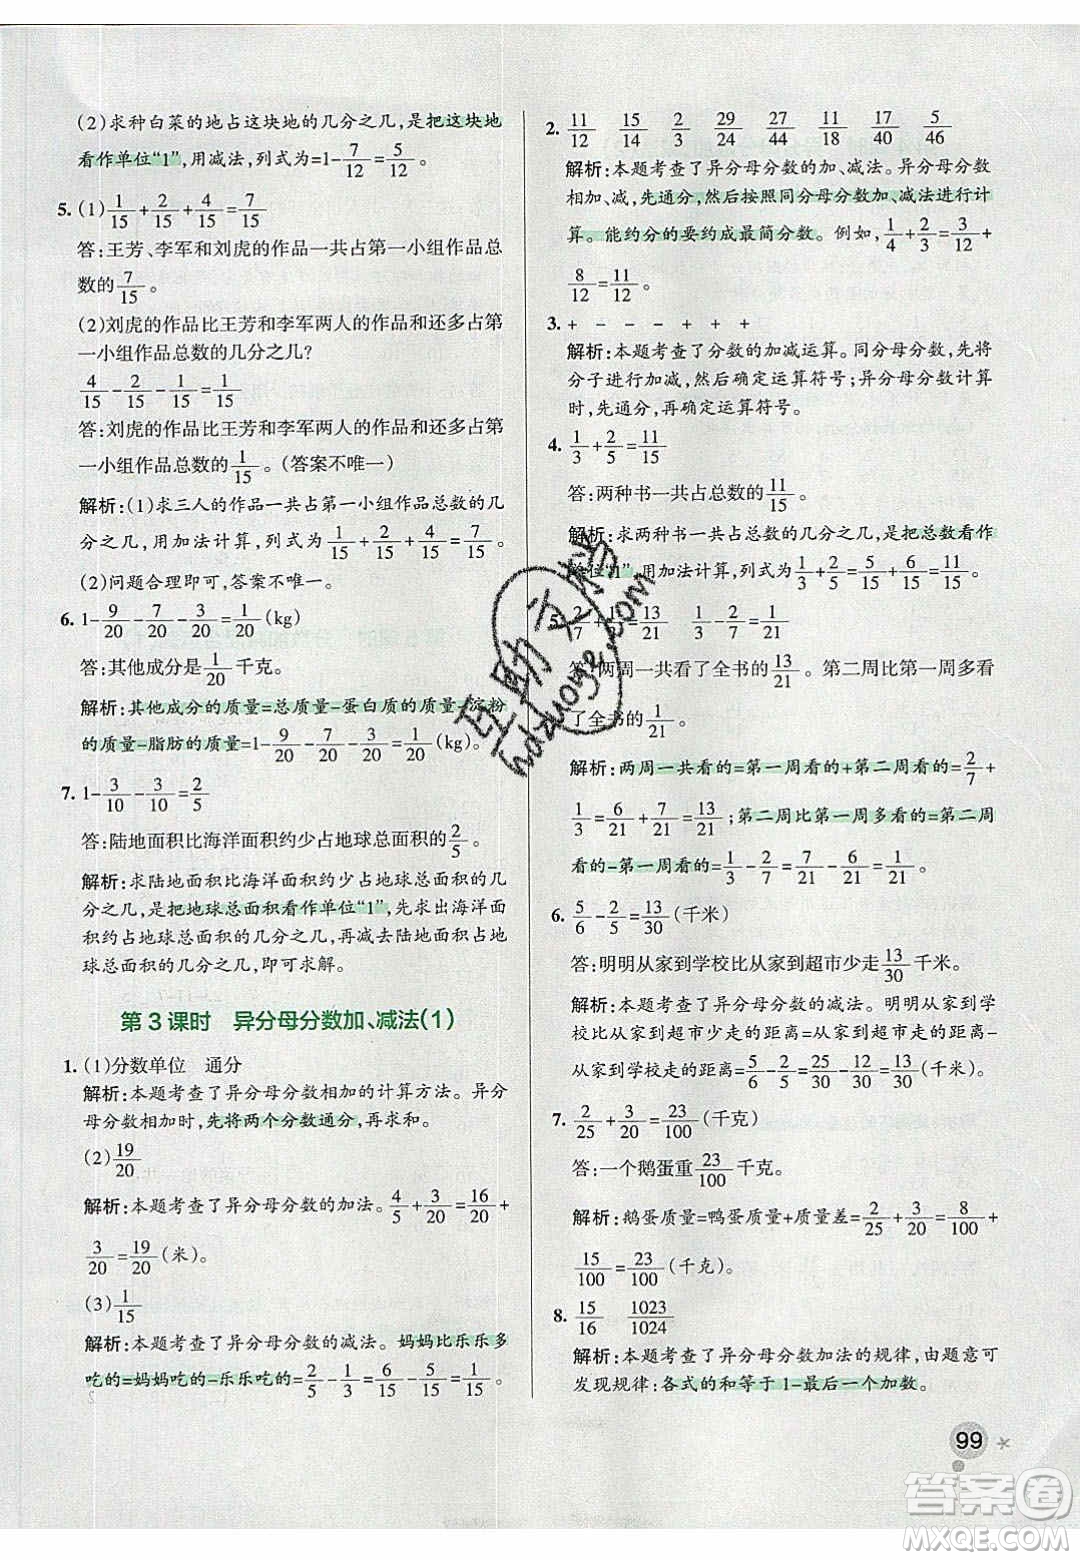 (2)求种白菜的地占这块地的几分之几,是把这块地
看作单位“1”,用减法,列式为=1-7/12=5/12。
5. (1)1/15+2/15+4/15=7/15
答:王芳、李军和刘虎的作品一共占第一小组作品总
数的7/15。
(2)刘虎的作品比王芳和李军两人的作品和还多占第
一小组作品总数的几分之几?
4/15-2/15-1/15=1/15
答:刘虎的作品比王芳和李军两人的作品和还多占第
一小组作品总数的1/15。(答案不唯一)
解析:(1)求三人的作品一共占第一小组作品总数的几
分之几,用加法计算,列式为1/15+2/15+4/15=7/15。
(2)问题合理即可,答案不唯一。
6. 1-9/20-7/20-3/20=1/20(kg)
答:其他成分是1/20千克。
解析:其他成分的质量=总质量-蛋白质的质量-淀粉
的质量-脂肪的质量=1-9/20-7/20-3/20=1/20(kg)。
7. 1-3/10-3/10=2/5
答:陆地面积比海洋面积约少占地球总面积的2/5。
解析:求陆地面积比海洋面积约少占地球总面积的几
分之几,是把地球总面积看作单位“1”,先求出海洋面
积约占地球总面积的几分之几,再减去陆地面积占地
球总面积的几分之几,即可求解。
第3课时 异分母分数加、减法(1)
1. (1)分数单位 通分
解析:本题考查了异分母分数相加的计算方法。异分
母分数相加时,先将两个分数通分,再求和。
(2)19/20
解析:本题考查了异分母分数的加法。4/5+3/20=16/20+
3/20=19/20(米)。
(3)1/15
解析:本题考查了异分母分数的减法。妈妈比乐乐多
吃的=妈妈吃的-乐乐吃的=2/5-1/3=6/15-5/15=1/15。
2. 11/12 15/14 2/3 29/24 27/28 11/18 17/40 5/46
解析:本题考查了异分母分数的加、减法。异分母分数
相加、减,先通分,然后按照同分母分数加、减法进行计
算。能约分的要约成最简分数。例如,1/4+2/3=3/12+
8/12=11/12。
3. + - - - + - + +
解析:本题考查了分数的加减运算。同分母分数,先将
分子进行加减,然后确定运算符号;异分母分数计算
时,先通分,再确定运算符号。
4. 1/3+2/5=11/15
答:两种书一共占总数的11/15。
解析:求两种书一共占总数的几分之几,是把总数看作
单位“1”,用加法计算,列式为1/3+2/5=5/15+6/15=11/15。
5. 2/7+1/3=13/21 1/3-2/7=1/21
答:两周一共看了全书的13/21。第二周比第一周多看
了全书的1/21。
解析:两周一共看的=第一周看的+第二周看的=2/7+
1/3=6/21+7/21=13/21;第二周比第一周多看的=第二周
看的-第一周看的=1/3-2/7=7/21-6/21=1/21。
6. 5/6-2/5=13/30(千米)
答:明明从家到学校比从家到超市少走13/30千米。
解析:本题考查了异分母分数的减法。明明从家到学
校比从家到超市少走的距离=从家到超市走的距离-
从家到学校走的距离=5/6-2/5=25/30-12/30=13/30(千米)。
7. 2/25+3/20=23/100(千克)
答:一个鹅蛋重23/100千克。
解析:鹅蛋质量=鸭蛋质量+质量差=2/25+3/20=8/100+
15/100=23/100(千克)。
8. 15/16 1023/1024
解析:本题考查了异分母分数加法的规律,由题意可
发现规律:各式的和等于1-最后一个加数。
99
互助文档
hdzuoye.com
答案圈
MXQE.COM